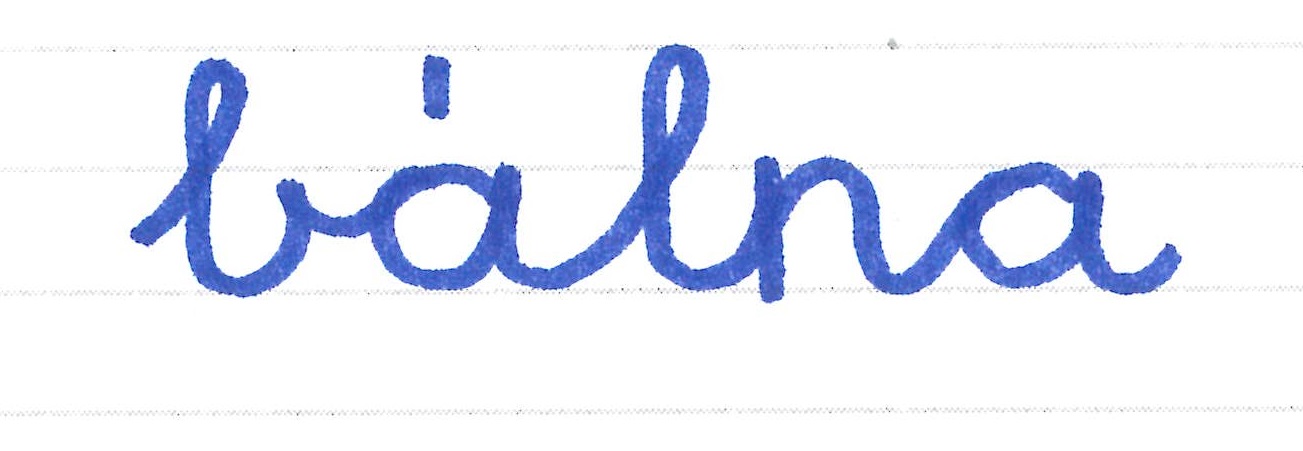 bálna